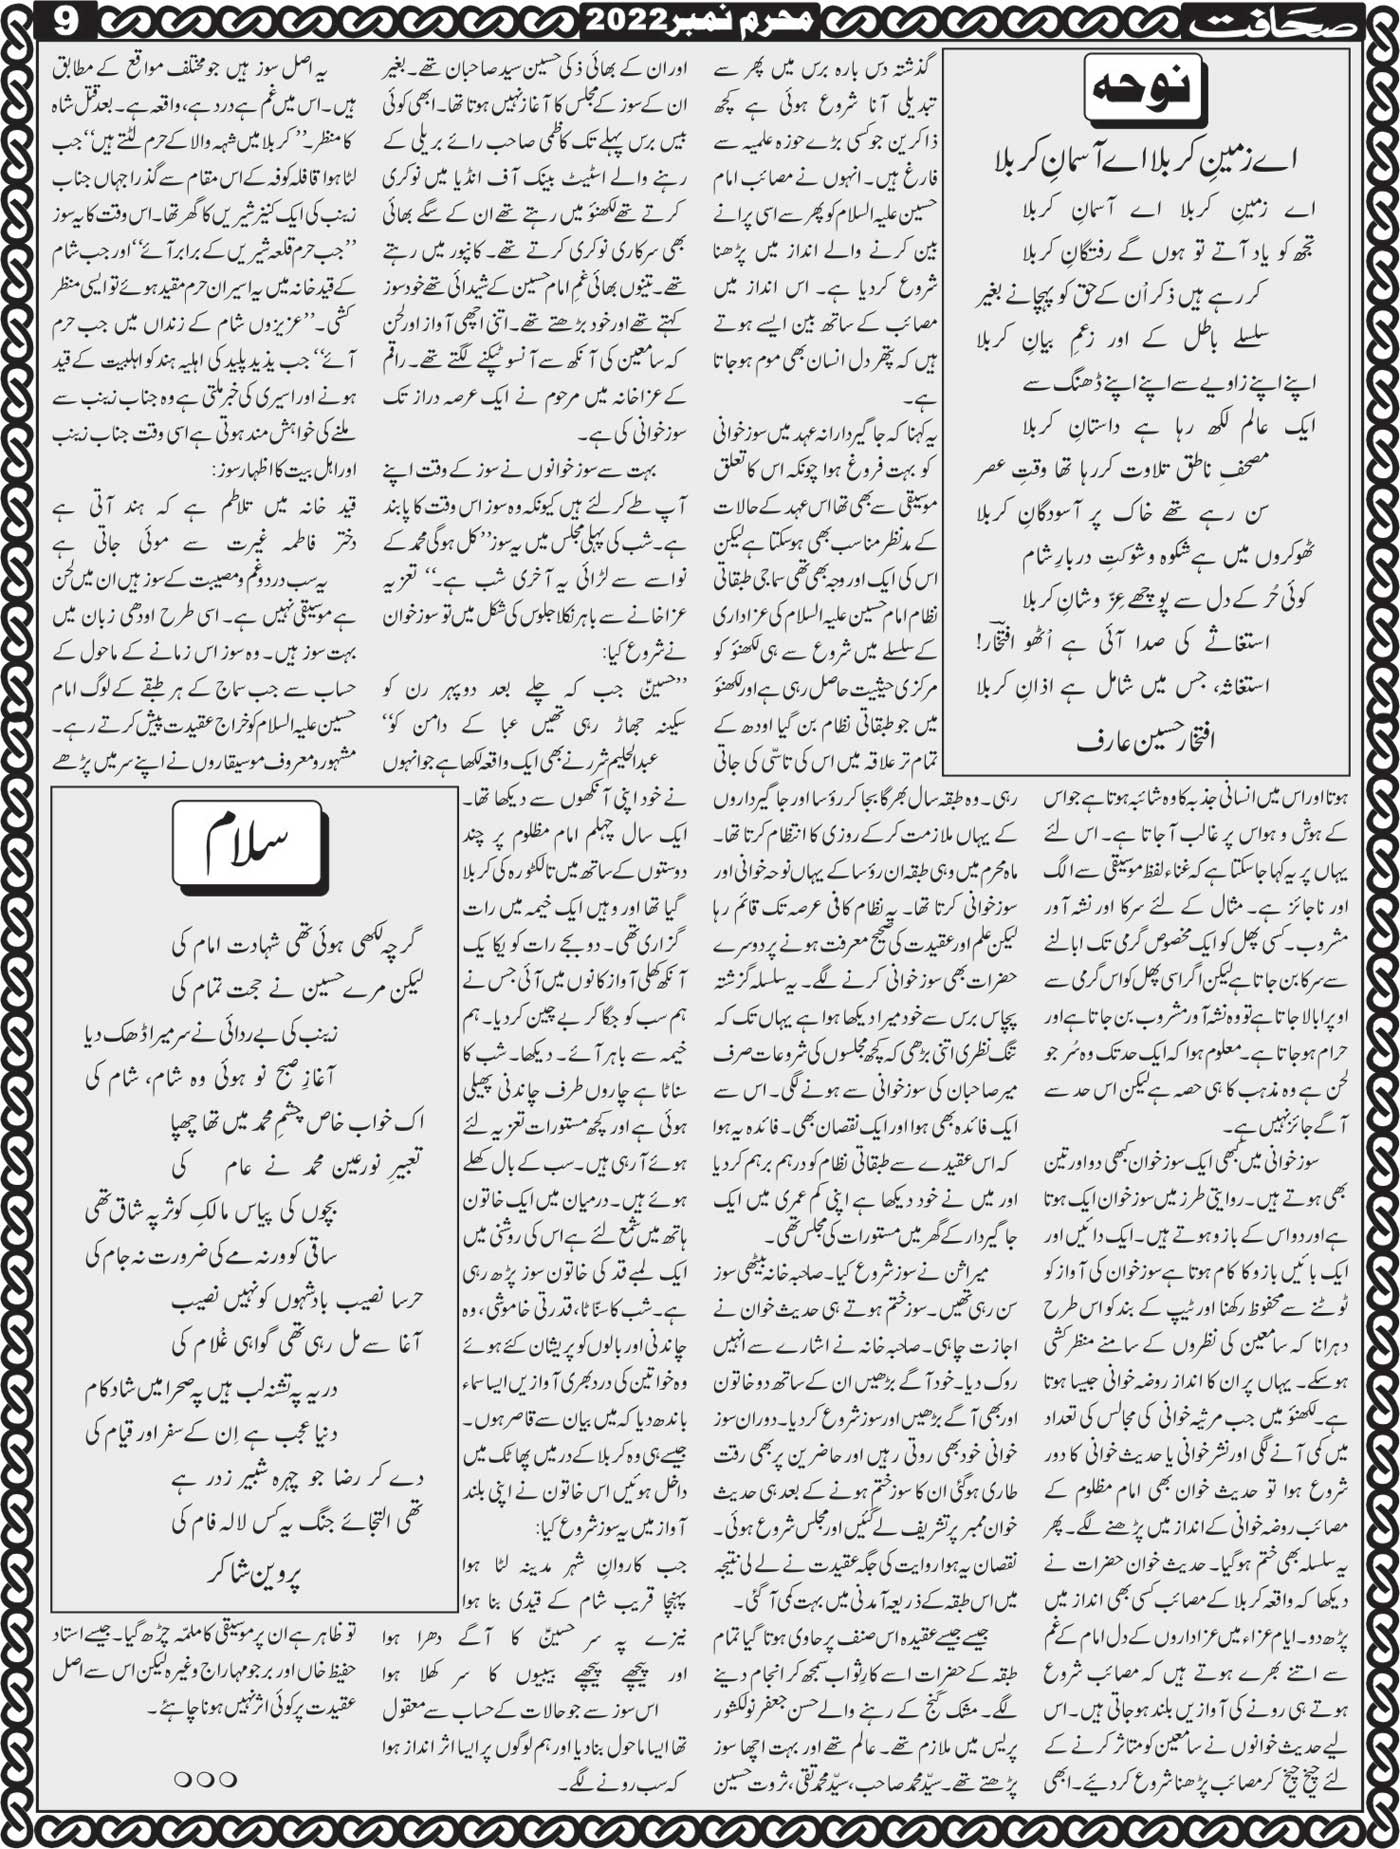 صحافت
محرم نمبر 2022
9
نوحہ
اے زمینِ کربلا اے آسمانِ کربلا
اے زمینِ کربلا اے آسمانِ کربلا
تجھ کو یاد آتے تو ہوں گے رفتگانِ کربلا
کر رہے ہیں ذکر اُن کے حق کو پہچانے بغیر
سلسلے باطل کے اور زعمِ بیانِ کربلا
اپنے اپنے زاویے سے اپنے اپنے ڈھنگ سے
ایک عالم لکھ رہا ہے داستانِ کربلا
مصحفِ ناطق تلاوت کر رہا تھا وقتِ عصر
سن رہے تھے خاک پر آسودگانِ کربلا
ٹھوکروں میں ہے شکوہ و شوکتِ دربارِ شام
کوئی حُر کے دل سے پوچھے عِزّ و شانِ کربلا
استغاثے کی صدا آئی ہے اُٹھو افتخار!
استغاثہ، جس میں شامل ہے اذانِ کربلا
افتخار حسین عارف
ہوتا اور اس میں انسانی جذبہ کا وہ شائبہ ہوتا ہے جو اس
کے ہوش و ہواس پر غالب آ جاتا ہے۔ اس لئے
یہاں پر یہ کہا جاسکتا ہے کہ غناء لفظ موسیقی سے الگ
اور ناجائز ہے۔ مثال کے لئے سرکا اور نشہ آور
مشروب۔ کسی پھل کو ایک مخصوص گرمی تک ابالنے
سے سرکا بن جاتا ہے لیکن اگر اسی پھل کو اس گرمی سے
اوپر ابالا جاتا ہے تو وہ نشہ آور مشروب بن جاتا ہے اور
حرام ہوجاتا ہے۔ معلوم ہوا کہ ایک حد تک وہ سُر جو
لحن ہے وہ مذہب کا ہی حصہ ہے لیکن اس حد سے
آگے جائز نہیں ہے۔
سوز خوانی میں کبھی ایک سوز خوان کبھی دو اور تین
بھی ہوتے ہیں۔ روایتی طرز میں سوز خوان ایک ہوتا
ہے اور دو اس کے بازو ہوتے ہیں۔ ایک دائیں اور
ایک بائیں بازو کا کام ہوتا ہے سوز خوان کی آواز کو
ٹوٹنے سے محفوظ رکھنا اور ٹیپ کے بند کو اس طرح
دہرانا کہ سامعین کی نظروں کے سامنے منظر کشی
ہوسکے۔ یہاں پر ان کا انداز روضہ خوانی جیسا ہوتا
ہے۔ لکھنؤ میں جب مرثیہ خوانی کی مجالس کی تعداد
میں کمی آنے لگی اور نثر خوانی یا حدیث خوانی کا دور
شروع ہوا تو حدیث خوان بھی امام مظلوم کے
مصائب روضہ خوانی کے انداز میں پڑھنے لگے۔ پھر
یہ سلسلہ بھی ختم ہوگیا۔ حدیث خوان حضرات نے
دیکھا کہ واقعہ کربلا کے مصائب کسی بھی انداز میں
پڑھ دو۔ ایام عزاء میں عزاداروں کے دل امام کے غم
سے اتنے بھرے ہوتے ہیں کہ مصائب شروع
ہوتے ہی رونے کی آوازیں بلند ہوجاتی ہیں۔ اس
لیے حدیث خوانوں نے سامعین کو متاثر کرنے کے
لئے چیخ چیخ کر مصائب پڑھنا شروع کردیئے۔ ابھی
گذشتہ دس بارہ برس میں پھر سے
تبدیلی آنا شروع ہوئی ہے کچھ
ذاکرین جو کسی بڑے حوزہ علمیہ سے
فارغ ہیں۔ انہوں نے مصائب امام
حسین علیہ السلام کو پھر سے اسی پرانے
بین کرنے والے انداز میں پڑھنا
شروع کردیا ہے۔ اس انداز میں
مصائب کے ساتھ بین ایسے ہوتے
ہیں کہ پتھر دل انسان بھی موم ہوجاتا
ہے۔
یہ کہنا کہ جاگیردارانہ عہد میں سوز خوانی
کو بہت فروغ ہوا چونکہ اس کا تعلق
موسیقی سے بھی تھا اس عہد کے حالات
کے مدنظر مناسب بھی ہوسکتا ہے لیکن
اس کی ایک اور وجہ بھی تھی سماجی طبقاتی
نظام امام حسین علیہ السلام کی عزاداری
کے سلسلے میں شروع سے ہی لکھنؤ کو
مرکزی حیثیت حاصل رہی ہے اور لکھنؤ
میں جو طبقاتی نظام بن گیا اودھ کے
تمام تر علاقہ میں اس کی تاسّی کی جاتی
رہی۔ وہ طبقہ سال بھر گا بجا کر رؤسا اور جاگیرداروں
کے یہاں ملازمت کرکے روزی کا انتظام کرتا تھا۔
ماہ محرم میں وہی طبقہ ان رؤسا کے یہاں نوحہ خوانی اور
سوز خوانی کرتا تھا۔ یہ نظام کافی عرصہ تک قائم رہا
لیکن علم اور عقیدت کی صحیح معرفت ہونے پر دوسرے
حضرات بھی سوز خوانی کرنے لگے۔ یہ سلسلہ گزشتہ
پچاس برس سے خود میرا دیکھا ہوا ہے یہاں تک کہ
تنگ نظری اتنی بڑھی کہ کچھ مجلسوں کی شروعات صرف
میر صاحبان کی سوز خوانی سے ہونے لگی۔ اس سے
ایک فائدہ بھی ہوا اور ایک نقصان بھی۔ فائدہ یہ ہوا
کہ اس عقیدے سے طبقاتی نظام کو درہم برہم کردیا
اور میں نے خود دیکھا ہے اپنی کم عمری میں ایک
جاگیردار کے گھر میں مستورات کی مجلس تھی۔
میراثن نے سوز شروع کیا۔ صاحبہ خانہ بیٹھی سوز
سن رہی تھیں۔ سوز ختم ہوتے ہی حدیث خوان نے
اجازت چاہی۔ صاحبہ خانہ نے اشارے سے انہیں
روک دیا۔ خود آگے بڑھیں ان کے ساتھ دو خاتون
اور بھی آگے بڑھیں اور سوز شروع کردیا۔ دوران سوز
خوانی خود بھی روتی رہیں اور حاضرین پر بھی رقت
طاری ہوگئی ان کا سوز ختم ہونے کے بعد ہی حدیث
خوان ممبر پر تشریف لے گئیں اور مجلس شروع ہوئی۔
نقصان یہ ہوا روایت کی جگہ عقیدت نے لے لی نتیجہ
میں اس طبقہ کے ذریعہ آمدنی میں بہت کمی آ گئی۔
جیسے جیسے عقیدہ اس صنف پر حاوی ہوتا گیا تمام
طبقہ کے حضرات اسے کارِ ثواب سمجھ کر انجام دینے
لگے۔ مشک گنج کے رہنے والے حسن جعفر نولکشور
پریس میں ملازم تھے۔ عالم تھے اور بہت اچھا سوز
پڑھتے تھے۔ سیّد محمد صاحب، سیّد محمد تقی، ثروت حسین
اور ان کے بھائی ذکی حسین سید صاحبان تھے۔ بغیر
ان کے سوز کے مجلس کا آغاز نہیں ہوتا تھا۔ ابھی کوئی
بیس برس پہلے تک کاظمی صاحب رائے بریلی کے
رہنے والے اسٹیٹ بینک آف انڈیا میں نوکری
کرتے تھے لکھنؤ میں رہتے تھے ان کے سگے بھائی
بھی سرکاری نوکری کرتے تھے۔ کانپور میں رہتے
تھے۔ تینوں بھائی غمِ امام حسین کے شیدائی تھے خود سوز
کہتے تھے اور خود پڑھتے تھے۔ اتنی اچھی آواز اور لحن
کہ سامعین کی آنکھ سے آنسو ٹپکنے لگتے تھے۔ راقم
کے عزاخانہ میں مرحوم نے ایک عرصہ دراز تک
سوز خوانی کی ہے۔
بہت سے سوز خوانوں نے سوز کے وقت اپنے
آپ طے کر لئے ہیں کیونکہ وہ سوز اس وقت کا پابند
ہے۔ شب کی پہلی مجلس میں یہ سوز ”کل ہوگی محمد کے
نواسے سے لڑائی یہ آخری شب ہے۔“ تعزیہ
عزاخانے سے باہر نکلا جلوس کی شکل میں تو سوز خوان
نے شروع کیا:
”حسینؑ جب کہ چلے بعد دوپہر رن کو
سکینہ جھاڑ رہی تھیں عبا کے دامن کو“
عبدالحلیم شرر نے بھی ایک واقعہ لکھا ہے جو انہوں
نے خود اپنی آنکھوں سے دیکھا تھا۔
ایک سال چہلم امام مظلوم پر چند
دوستوں کے ساتھ میں تالکٹورہ کی کربلا
گیا تھا اور وہیں ایک خیمہ میں رات
گزاری تھی۔ دو بجے رات کو یکایک
آنکھ کھلی آواز کانوں میں آئی جس نے
ہم سب کو جگا کر بے چین کردیا۔ ہم
خیمہ سے باہر آئے۔ دیکھا۔ شب کا
سناٹا ہے چاروں طرف چاندنی پھیلی
ہوئی ہے اور کچھ مستورات تعزیہ لئے
ہوئے آ رہی ہیں۔ سب کے بال کھلے
ہوئے ہیں۔ درمیان میں ایک خاتون
ہاتھ میں شمع لئے ہے اس کی روشنی میں
ایک لمبے قد کی خاتون سوز پڑھ رہی
ہے۔ شب کا سنّاٹا، قدرتی خاموشی، وہ
چاندنی اور بالوں کو پریشان کئے ہوئے
وہ خواتین کی درد بھری آوازیں ایسا سماء
باندھ دیا کہ میں بیان سے قاصر ہوں۔
جیسے ہی وہ کربلا کے در میں پھاٹک میں
داخل ہوئیں اس خاتون نے اپنی بلند
آواز میں یہ سوز شروع کیا:
جب کاروانِ شہر مدینہ لٹا ہوا
پہنچا قریب شام کے قیدی بنا ہوا
نیزے پہ سر حسینؑ کا آگے دھرا ہوا
اور پیچھے پیچھے بیبیوں کا سر کھلا ہوا
اس سوز سے جو حالات کے حساب سے معقول
تھا ایسا ماحول بنادیا اور ہم لوگوں پر ایسا اثر انداز ہوا
کہ سب رونے لگے۔
یہ اصل سوز ہیں جو مختلف مواقع کے مطابق
ہیں۔ اس میں غم ہے درد ہے، واقعہ ہے۔ بعد قتل شاہ
کا منظر۔ ”کربلا میں شہہ والا کے حرم لٹتے ہیں“ جب
لٹا ہوا قافلہ کوفہ کے اس مقام سے گذرا جہاں جناب
زینب کی ایک کنیز شیریں کا گھر تھا۔ اس وقت کا یہ سوز
”جب حرم قلعہ شیریں کے برابر آئے“ اور جب شام
کے قید خانہ میں یہ اسیران حرم مقید ہوئے تو ایسی منظر
کشی۔ ”عزیزوں شام کے زنداں میں جب حرم
آئے“ جب یذید پلید کی اہلیہ ہند کو اہلبیت کے قید
ہونے اور اسیری کی خبر ملتی ہے وہ جناب زینب سے
ملنے کی خواہش مند ہوتی ہے اسی وقت جناب زینب
اور اہل بیت کا اظہار سوز:
قید خانہ میں تلاطم ہے کہ ہند آتی ہے
دختر فاطمہ غیرت سے موئی جاتی ہے
یہ سب درد و غم و مصیبت کے سوز ہیں ان میں لحن
ہے موسیقی نہیں ہے۔ اسی طرح اودھی زبان میں
بہت سوز ہیں۔ وہ سوز اس زمانے کے ماحول کے
حساب سے جب سماج کے ہر طبقے کے لوگ امام
حسین علیہ السلام کو خراج عقیدت پیش کرتے رہے۔
مشہور و معروف موسیقاروں نے اپنے سر میں پڑھے
تو ظاہر ہے ان پر موسیقی کا ملمّہ چڑھ گیا۔ جیسے استاد
حفیظ خاں اور برجو مہاراج وغیرہ لیکن اس سے اصل
عقیدت پر کوئی اثر نہیں ہونا چاہئے۔
سلام
گرچہ لکھی ہوئی تھی شہادت امام کی
لیکن مرے حسین نے حجت تمام کی
زینب کی بے ردائی نے سر میرا ڈھک دیا
آغازِ صبح نو ہوئی وہ شام، شام کی
اک خواب خاص چشمِ محمد میں تھا چھپا
تعبیرِ نورِ عین محمد نے عام کی
بچوں کی پیاس مالکِ کوثر پہ شاق تھی
ساقی کو ورنہ مے کی ضرورت نہ جام کی
حر سا نصیب بادشہوں کو نہیں نصیب
آغا سے مل رہی تھی گواہی غلام کی
دریہ پہ تشنہ لب ہیں پہ صحرا میں شادکام
دنیا عجب ہے اِن کے سفر اور قیام کی
دے کر رضا جو چہرہ شبیر زدر ہے
تھی التجائے جنگ یہ کس لالہ فام کی
پروین شاکر